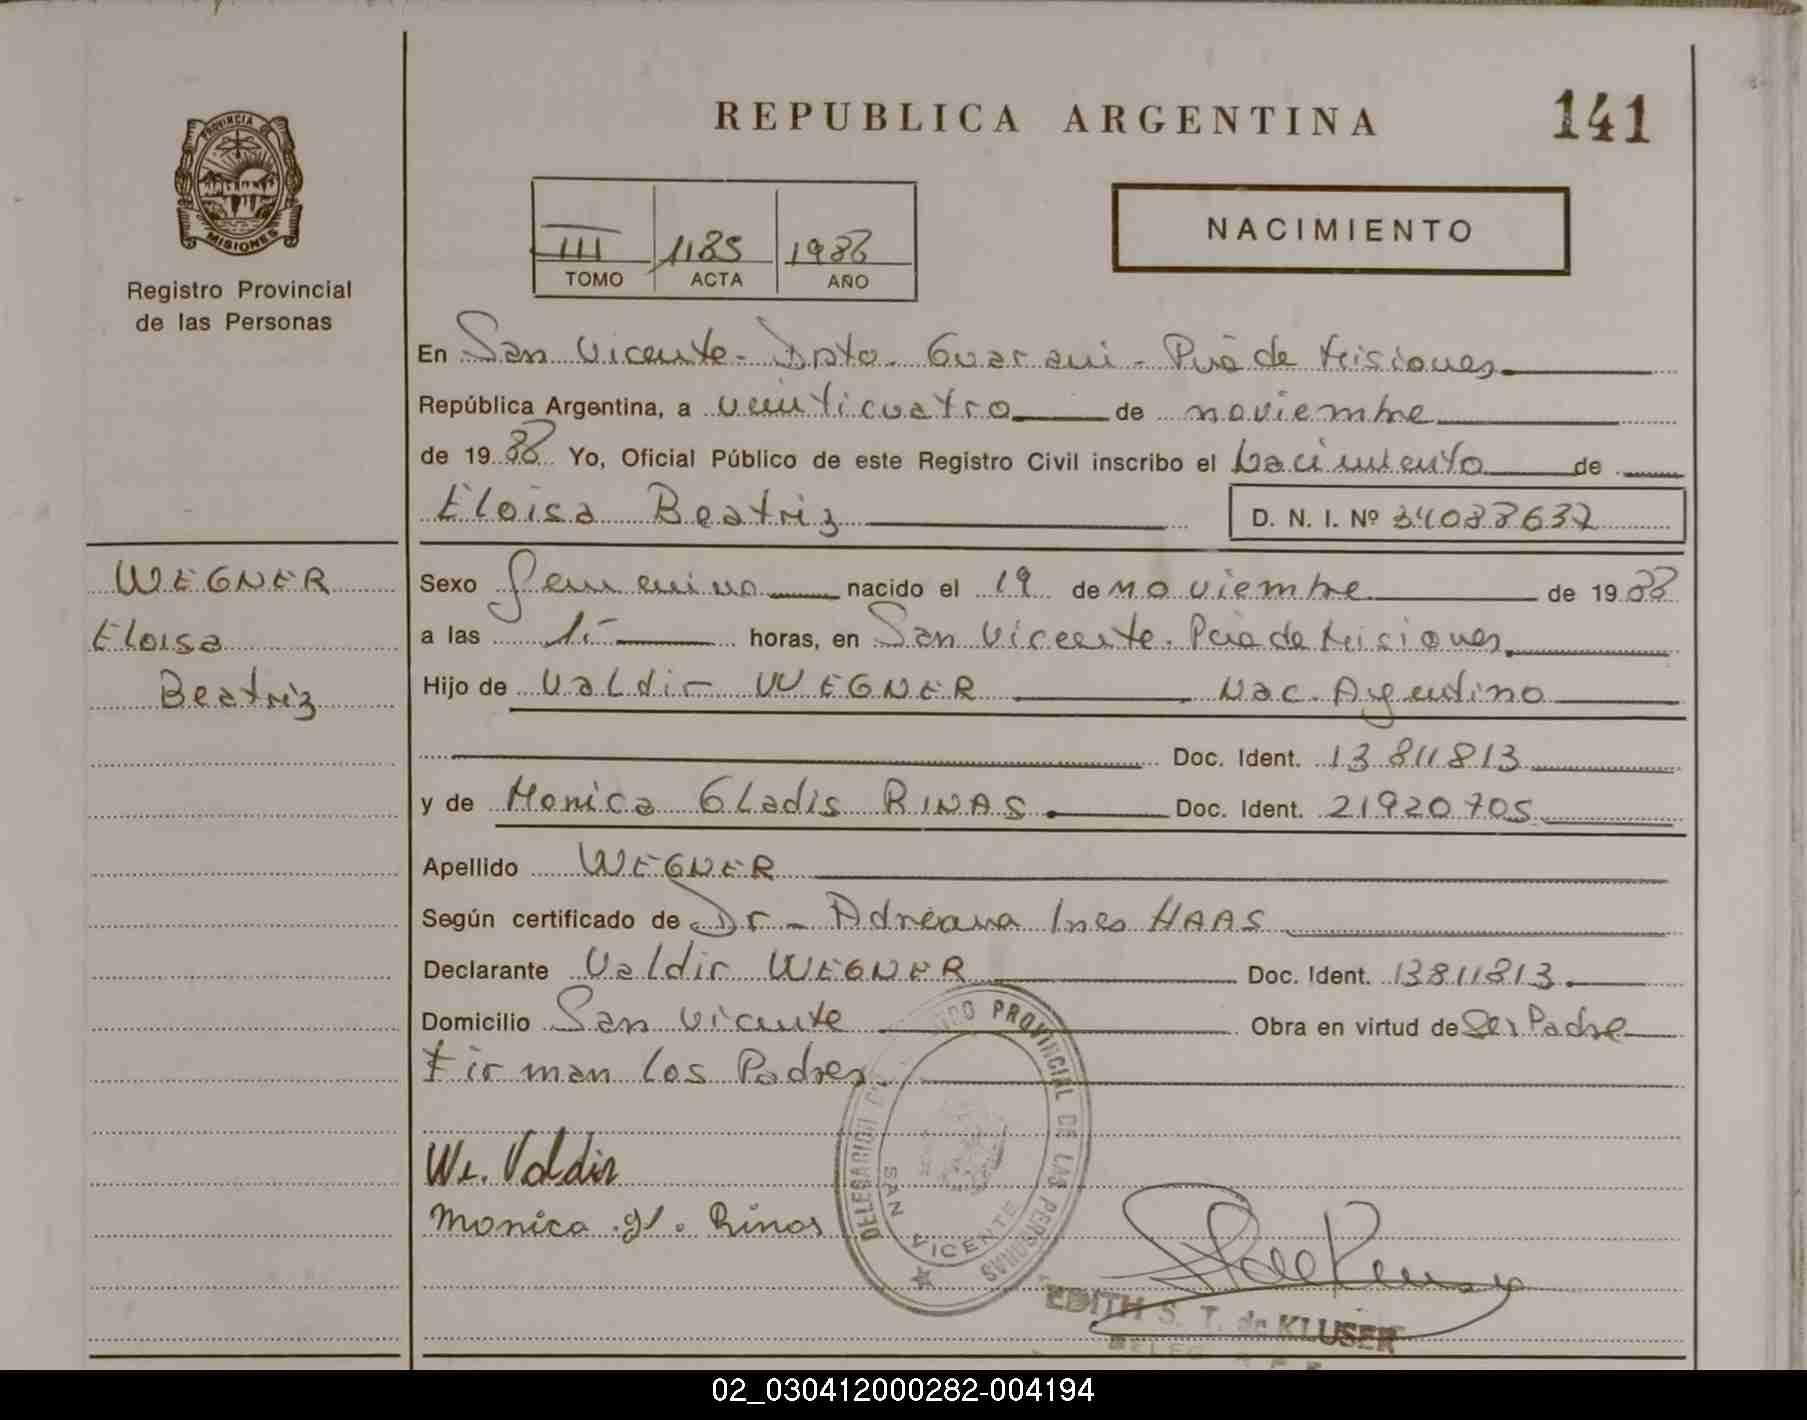 REPUBLICA ARGENTINA
141
PROVINCIA DE
MISIONES
Registro Provincial
de las Personas
III 1185 1988
TOMO ACTA AÑO
NACIMIENTO
En San Vicente - Dpto. Guarani - Pcia de Misiones
República Argentina, a veinticuatro de noviembre
de 1988 Yo, Oficial Público de este Registro Civil inscribo el Nacimiento de
Eloisa Beatriz
D. N. I. Nº 34088637
WEGNER
Eloisa
Beatriz
Sexo Femenino nacido el 19 de noviembre de 1988
a las horas, en San Vicente. Pcia de Misiones
Hijo de Valdir WEGNER Nac. Argentino
Doc. Ident. 13811813
y de Monica Gladis RINAS. Doc. Ident. 21920705
Apellido WEGNER
Según certificado de Dr - Adreana Ines HAAS
Declarante Valdir WEGNER Doc. Ident. 13811813
Domicilio San Vicente Obra en virtud de Ser Padre
Firman los Padres.
We. Valdir
Monica .gl. Rinas
DELEGACION PROVINCIAL DE LAS PERSONAS
SAN VICENTE
EDITH S. T. de KLUSER
02_030412000282-004194